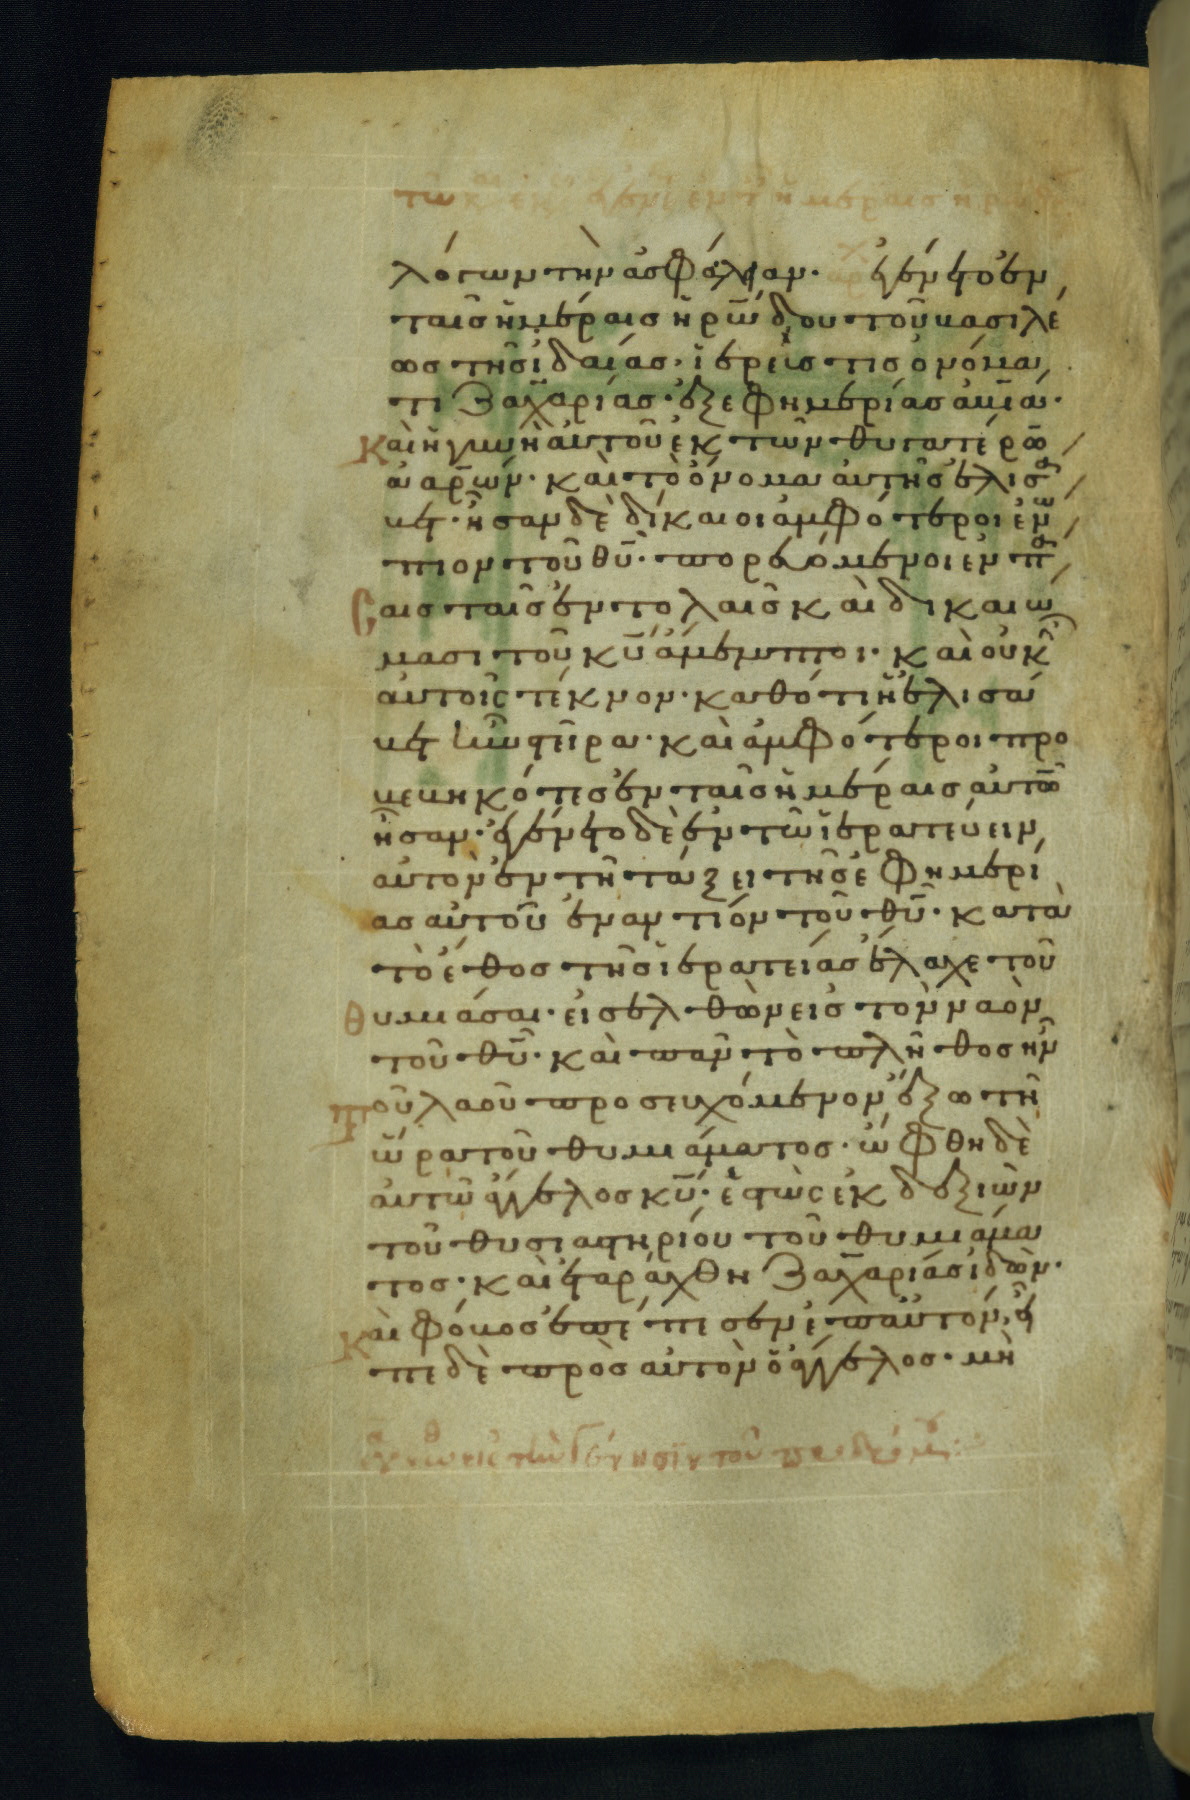 λόγων τὴν ἀσφάλειαν· ἐγένετο ἐν
ταῖς ἡμέραις ἡρώδου τοῦ βασιλέ
ως τῆς ἰδαίας· ἱερεύς τις ὀνόμα
τι Ζαχαρίας· ἐξ ἐφημερίας ἀβιά·
Καὶ ἡ γυνὴ αὐτοῦ ἐκ τῶν θυγατέρω̄
ἀαρών· καὶ τὸ ὄνομα αὐτῆς ἐλισά
βετ· ἦσαν δὲ δίκαιοι ἀμφότεροι ἐνώ
πιον τοῦ θῡ· πορευόμενοι ἐν πά
σαις ταῖς ἐντολαῖς καὶ δικαιώ
μασι τοῦ κῡ ἄμεμπτοι· καὶ οὐκ ἦν
αὐτοῖς τέκνον· καθότι ἡ ἐλισά
βετ ἦν στεῖρα· καὶ ἀμφότεροι προ
βεβηκότες ἐν ταῖς ἡμέραις αὐτῶ̄
ἦσαν· ἐγένετο δὲ ἐν τῶ ἱερατεύειν
αὐτὸν ἐν τῆ τάξει τῆς ἐφημερί
ας αὐτοῦ ἐναντίον τοῦ θῡ· κατὰ
τὸ ἔθος τῆς ἱερατείας ἔλαχε τοῦ
θυμιάσαι· εἰσελθὼν εἰς τὸν ναὸν
τοῦ θῡ· καὶ πᾶν τὸ πλῆθος ἦν
τοῦ λαοῦ προσευχόμενον ἔξω τῆ
ὥρα τοῦ θυμιάματος· ὤφθη δὲ
αὐτῶ ἄγγελος κῡ· ἑστὼς ἐκ δεξιῶν
τοῦ θυσιαστηρίου τοῦ θυμιάμα
τος· καὶ ἐταράχθη Ζαχαρίας ἰδών·
καὶ φόβος ἐπέπεσεν ἐπ αὐτόν· εἶ
πε δὲ πρὸς αὐτὸν ὁ ἄγγελος· μὴ